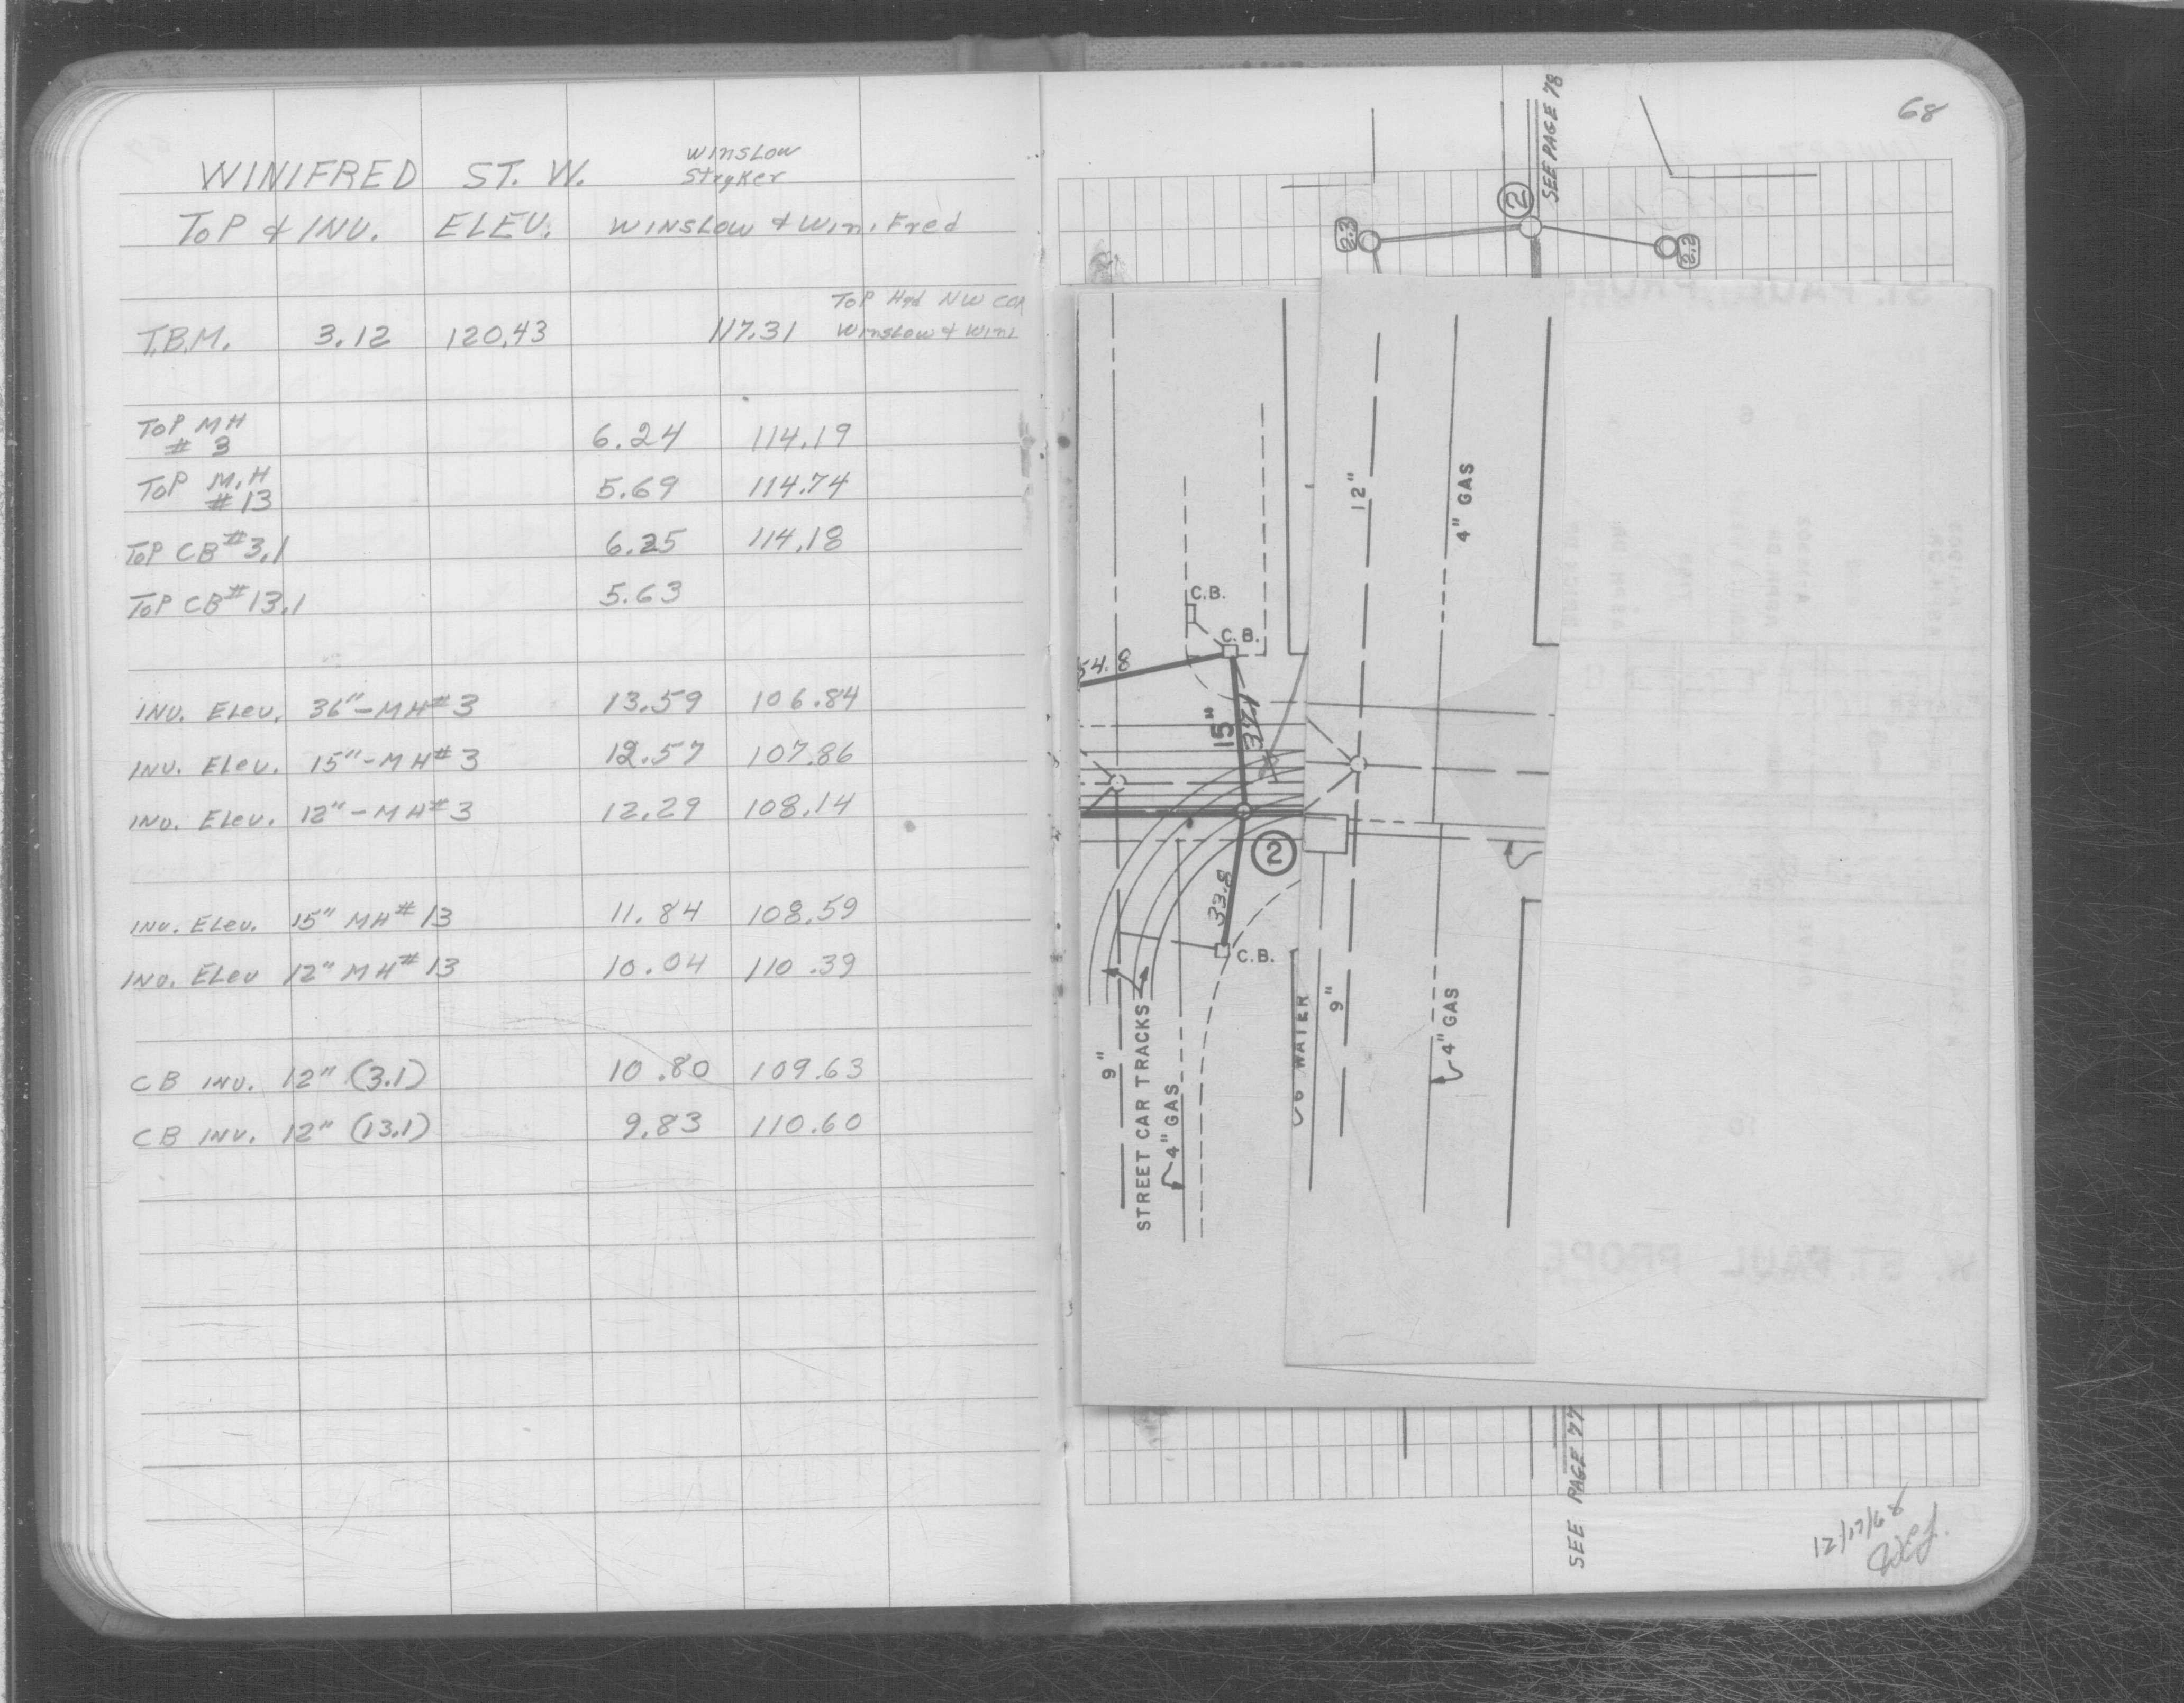 WINIFRED ST. W. WINSLOW
Stryker
TOP & INV. ELEV. WINSLOW & WiniFred
TOP Hyd NW COR
T.B.M. 3.12 120.43 117.31 WINSLOW & WINI
TOP MH
# 3 6.24 114.19
TOP M.H
# 13 5.69 114.74
TOP CB #3.1 6.25 114.18
TOP CB #13.1 5.63
INV. ELEV. 36"-MH#3 13.59 106.84
INV. ELEV. 15"-MH#3 12.57 107.86
INV. ELEV. 12"-MH#3 12.29 108.14
INV. ELEV. 15" MH#13 11.84 108.59
INV. ELEV 12" MH#13 10.04 110.39
CB INV. 12" (3.1) 10.80 109.63
CB INV. 12" (13.1) 9.83 110.60
68
SEE PAGE 78
2
2.3
2.2
12"
4" GAS
C.B.
C.B.
54.8
15"
37.1
2
33.8
C.B.
9"
STREET CAR TRACKS
4" GAS
6 WATER
9"
4" GAS
W. ST. PAUL PROPE
SEE PAGE 77
12/17/68